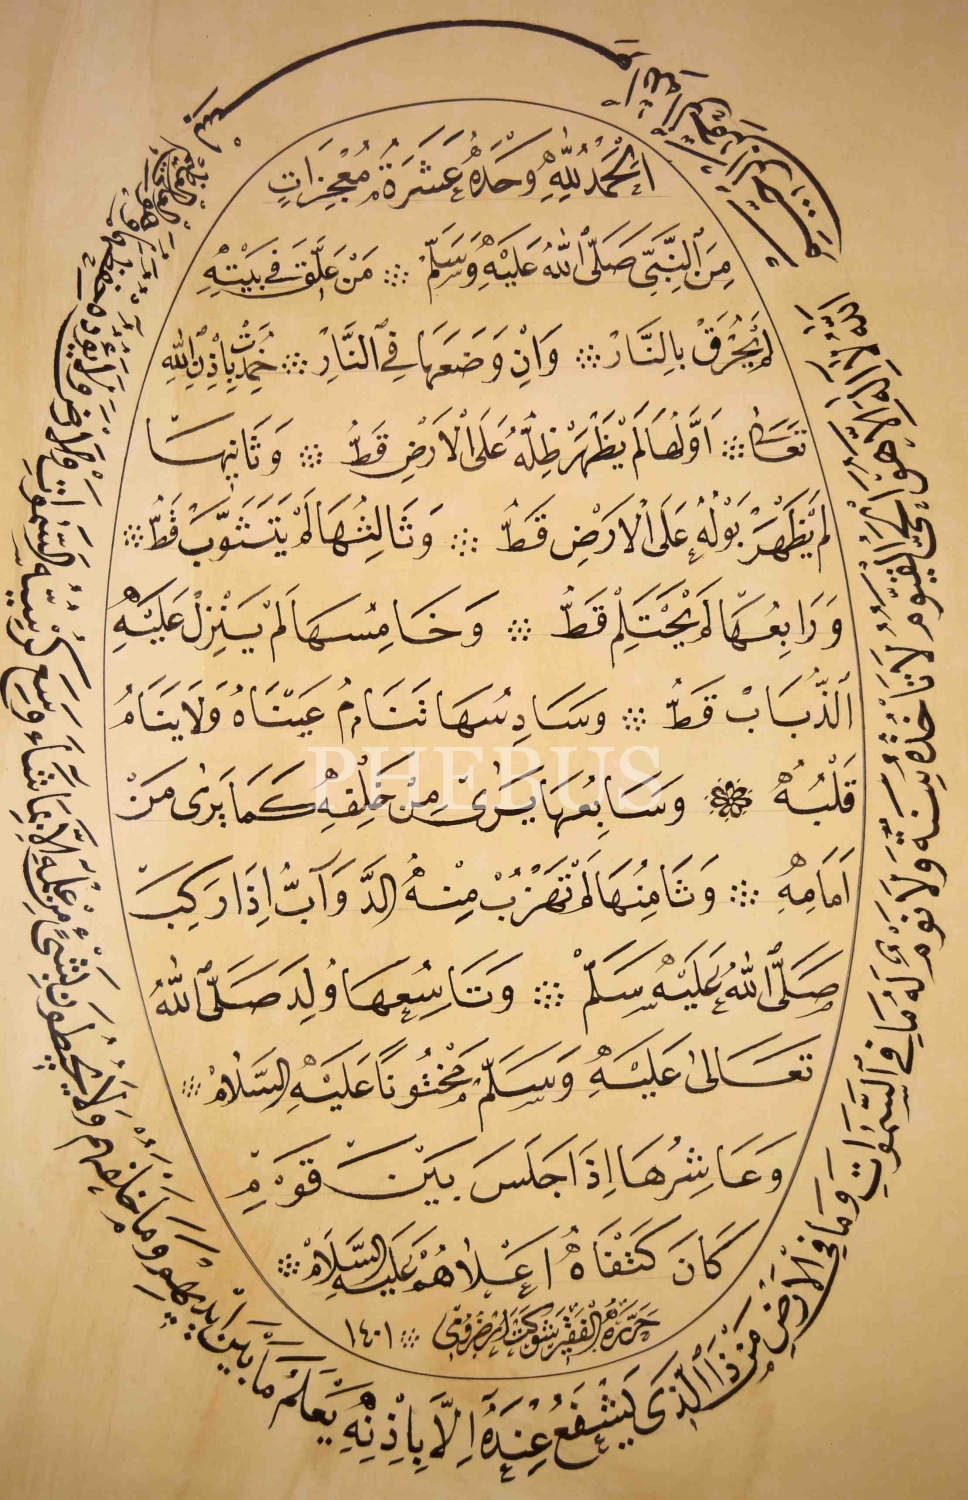 بسم الله الرحمن الرحيم
الله لا اله الا هو الحي القيوم لا تاخذه سنة ولا نوم له ما في السموات وما في الارض من ذا الذي يشفع عنده الا باذنه يعلم ما بين ايديهم وما خلفهم ولا يحيطون بشئ من علمه الا بما شاء وسع كرسيه السموات والارض ولا يؤده حفظهما وهو العلي العظيم
الحمد لله وحده عشرة معجزات
من النبي صلى الله عليه وسلم من علق في بيته
لم يحرق بالنار وان وضعها في النار خمدت باذن الله
تعالى اولها لم يظهر ظله على الارض قط وثانيها
لم يظهر بوله على الارض قط وثالثها لم يتثوب قط
ورابعها لم يحتلم قط وخامسها لم ينزل عليه
الذباب قط وسادسها تنام عيناه ولا ينام
قلبه وسابعها يرى من خلفه كما يرى من
امامه وثامنها لم تهزب منه الدوآب اذا ركب
صلى الله عليه وسلم وتاسعها ولد صلى الله
تعالى عليه وسلم مختونا عليه السلام
وعاشرها اذا جلس بين قوم
كان كتفاه اعلاهم عليه السلام
حرره الفقير شوكت ١٤٠١
PHEBUS